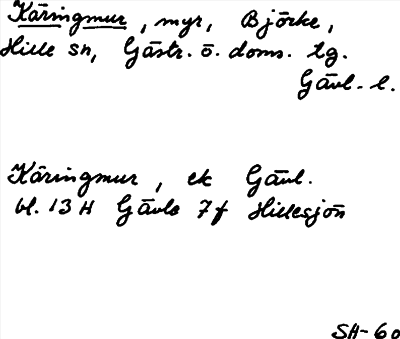 Käringmur, myr, Björke,
Hille sn, Gästr. ö. doms. tg.
Gävl. l.
Käringmur, ek Gävl.
bl. 13 H Gävle 7f Hillesjön
SH-60